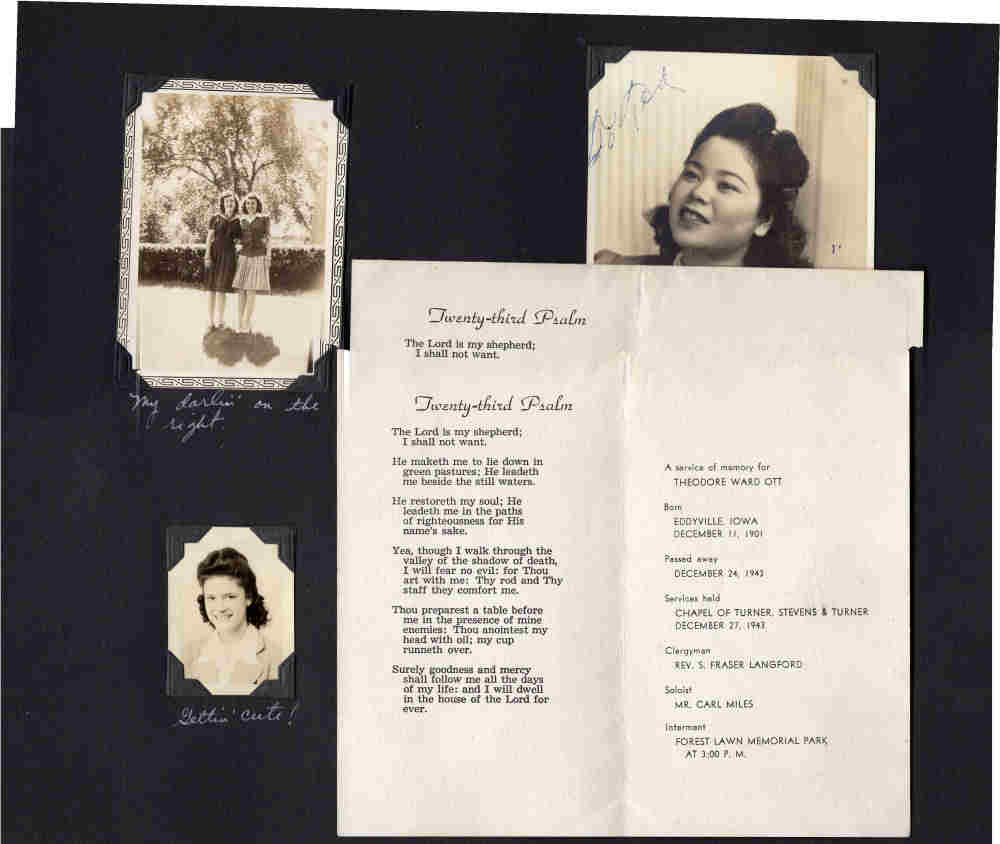 My darlin' on the
right.
Gettin' cute!
Twenty-third Psalm
The Lord is my shepherd;
I shall not want.
Twenty-third Psalm
The Lord is my shepherd;
I shall not want.
He maketh me to lie down in
green pastures; He leadeth
me beside the still waters.
He restoreth my soul; He
leadeth me in the paths
of righteousness for His
name's sake.
Yea, though I walk through the
valley of the shadow of death,
I will fear no evil: for Thou
art with me: Thy rod and Thy
staff they comfort me.
Thou preparest a table before
me in the presence of mine
enemies: Thou anointest my
head with oil; my cup
runneth over.
Surely goodness and mercy
shall follow me all the days
of my life: and I will dwell
in the house of the Lord for
ever.
A service of memory for
THEODORE WARD OTT
Born
EDDYVILLE, IOWA
DECEMBER 11, 1901
Passed away
DECEMBER 24, 1943
Services held
CHAPEL OF TURNER, STEVENS & TURNER
DECEMBER 27, 1943
Clergyman
REV. S. FRASER LANGFORD
Soloist
MR. CARL MILES
Interment
FOREST LAWN MEMORIAL PARK
AT 3:00 P. M.